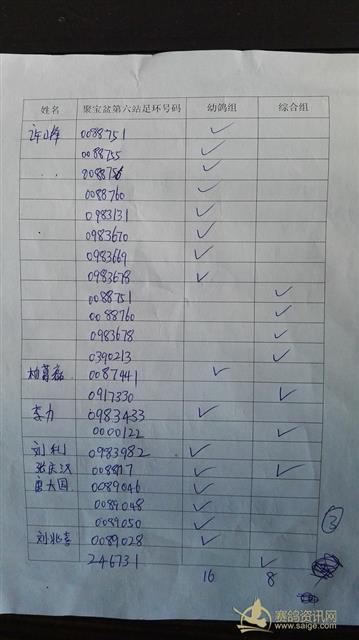 姓名 聚宝盆第六站足环号码 幼鸽组 综合组
许峰 0088751 ✓
0088755 ✓
0088756 ✓
0088760 ✓
0983131 ✓
0983670 ✓
0983669 ✓
0983678 ✓
0088751 ✓
0088760 ✓
0983678 ✓
0390213 ✓
0087441 ✓
0917330 ✓
李力 0983433 ✓
0000122 ✓
刘利 0983982 ✓
008817 ✓ ✓
0089046 ✓
0089048 ✓
0089050 ✓
刘兆喜 0089028 ✓
246731 ✓
16 8
3
赛鸽资讯网
www.saige.com